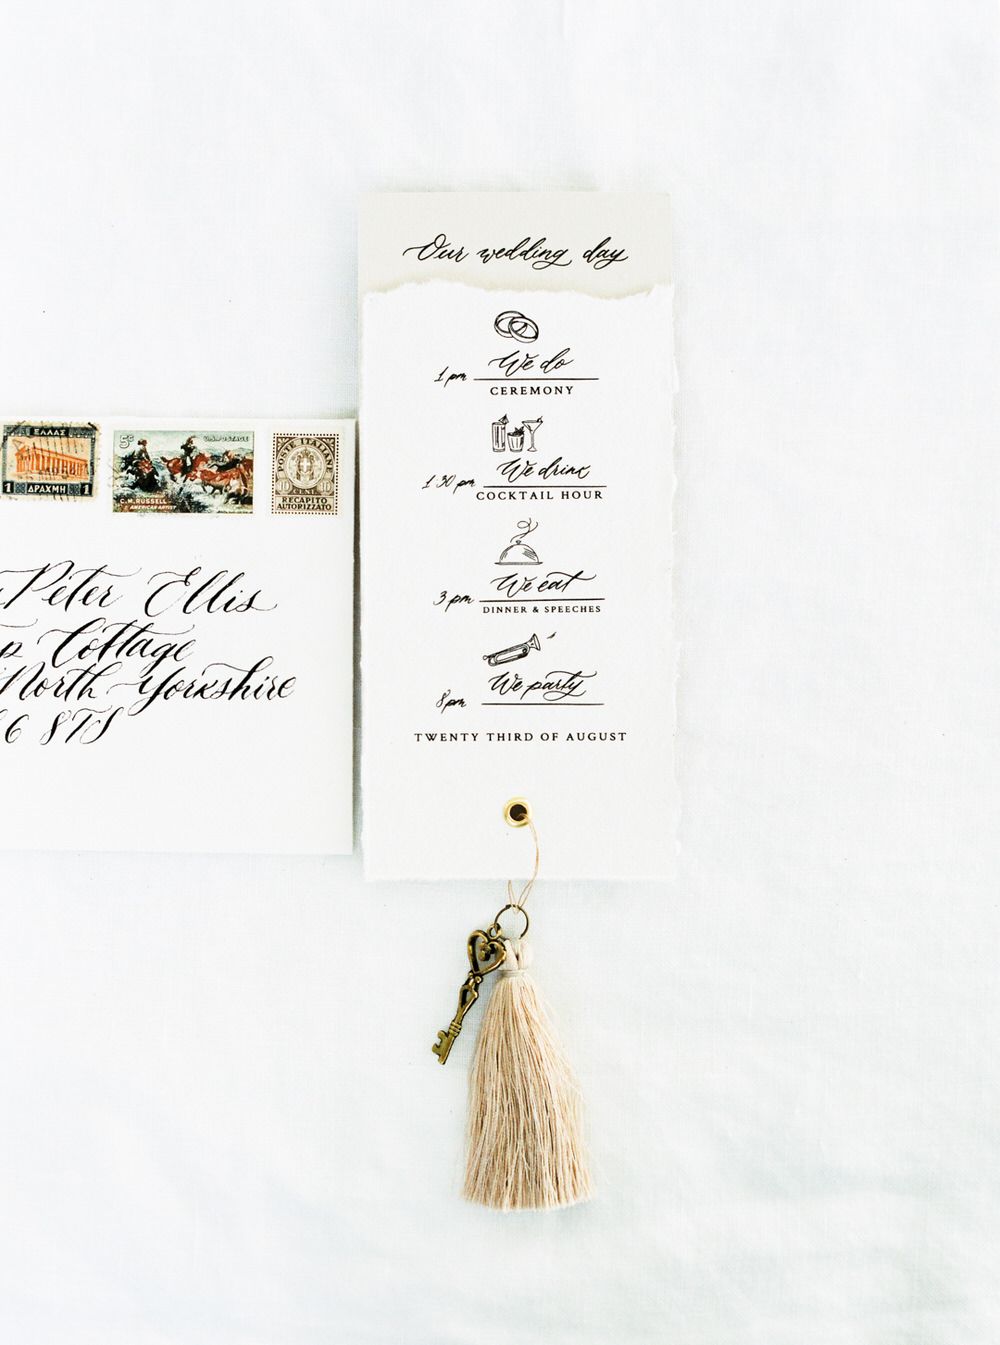 Our wedding day
We do
1 pm
CEREMONY
We drink
1 30 pm
COCKTAIL HOUR
We eat
3 pm
DINNER & SPEECHES
We party
8 pm
TWENTY THIRD OF AUGUST
ΕΛΛΑΣ
1 ΔΡΑΧΜΗ 1
5c U.S. POSTAGE
C.M. RUSSELL
AMERICAN ARTIST
POSTE ITALIANE
10 CENT. 10
RECAPITO
AUTORIZZATO
Peter Ellis
Cottage
North Yorkshire
6 8TS